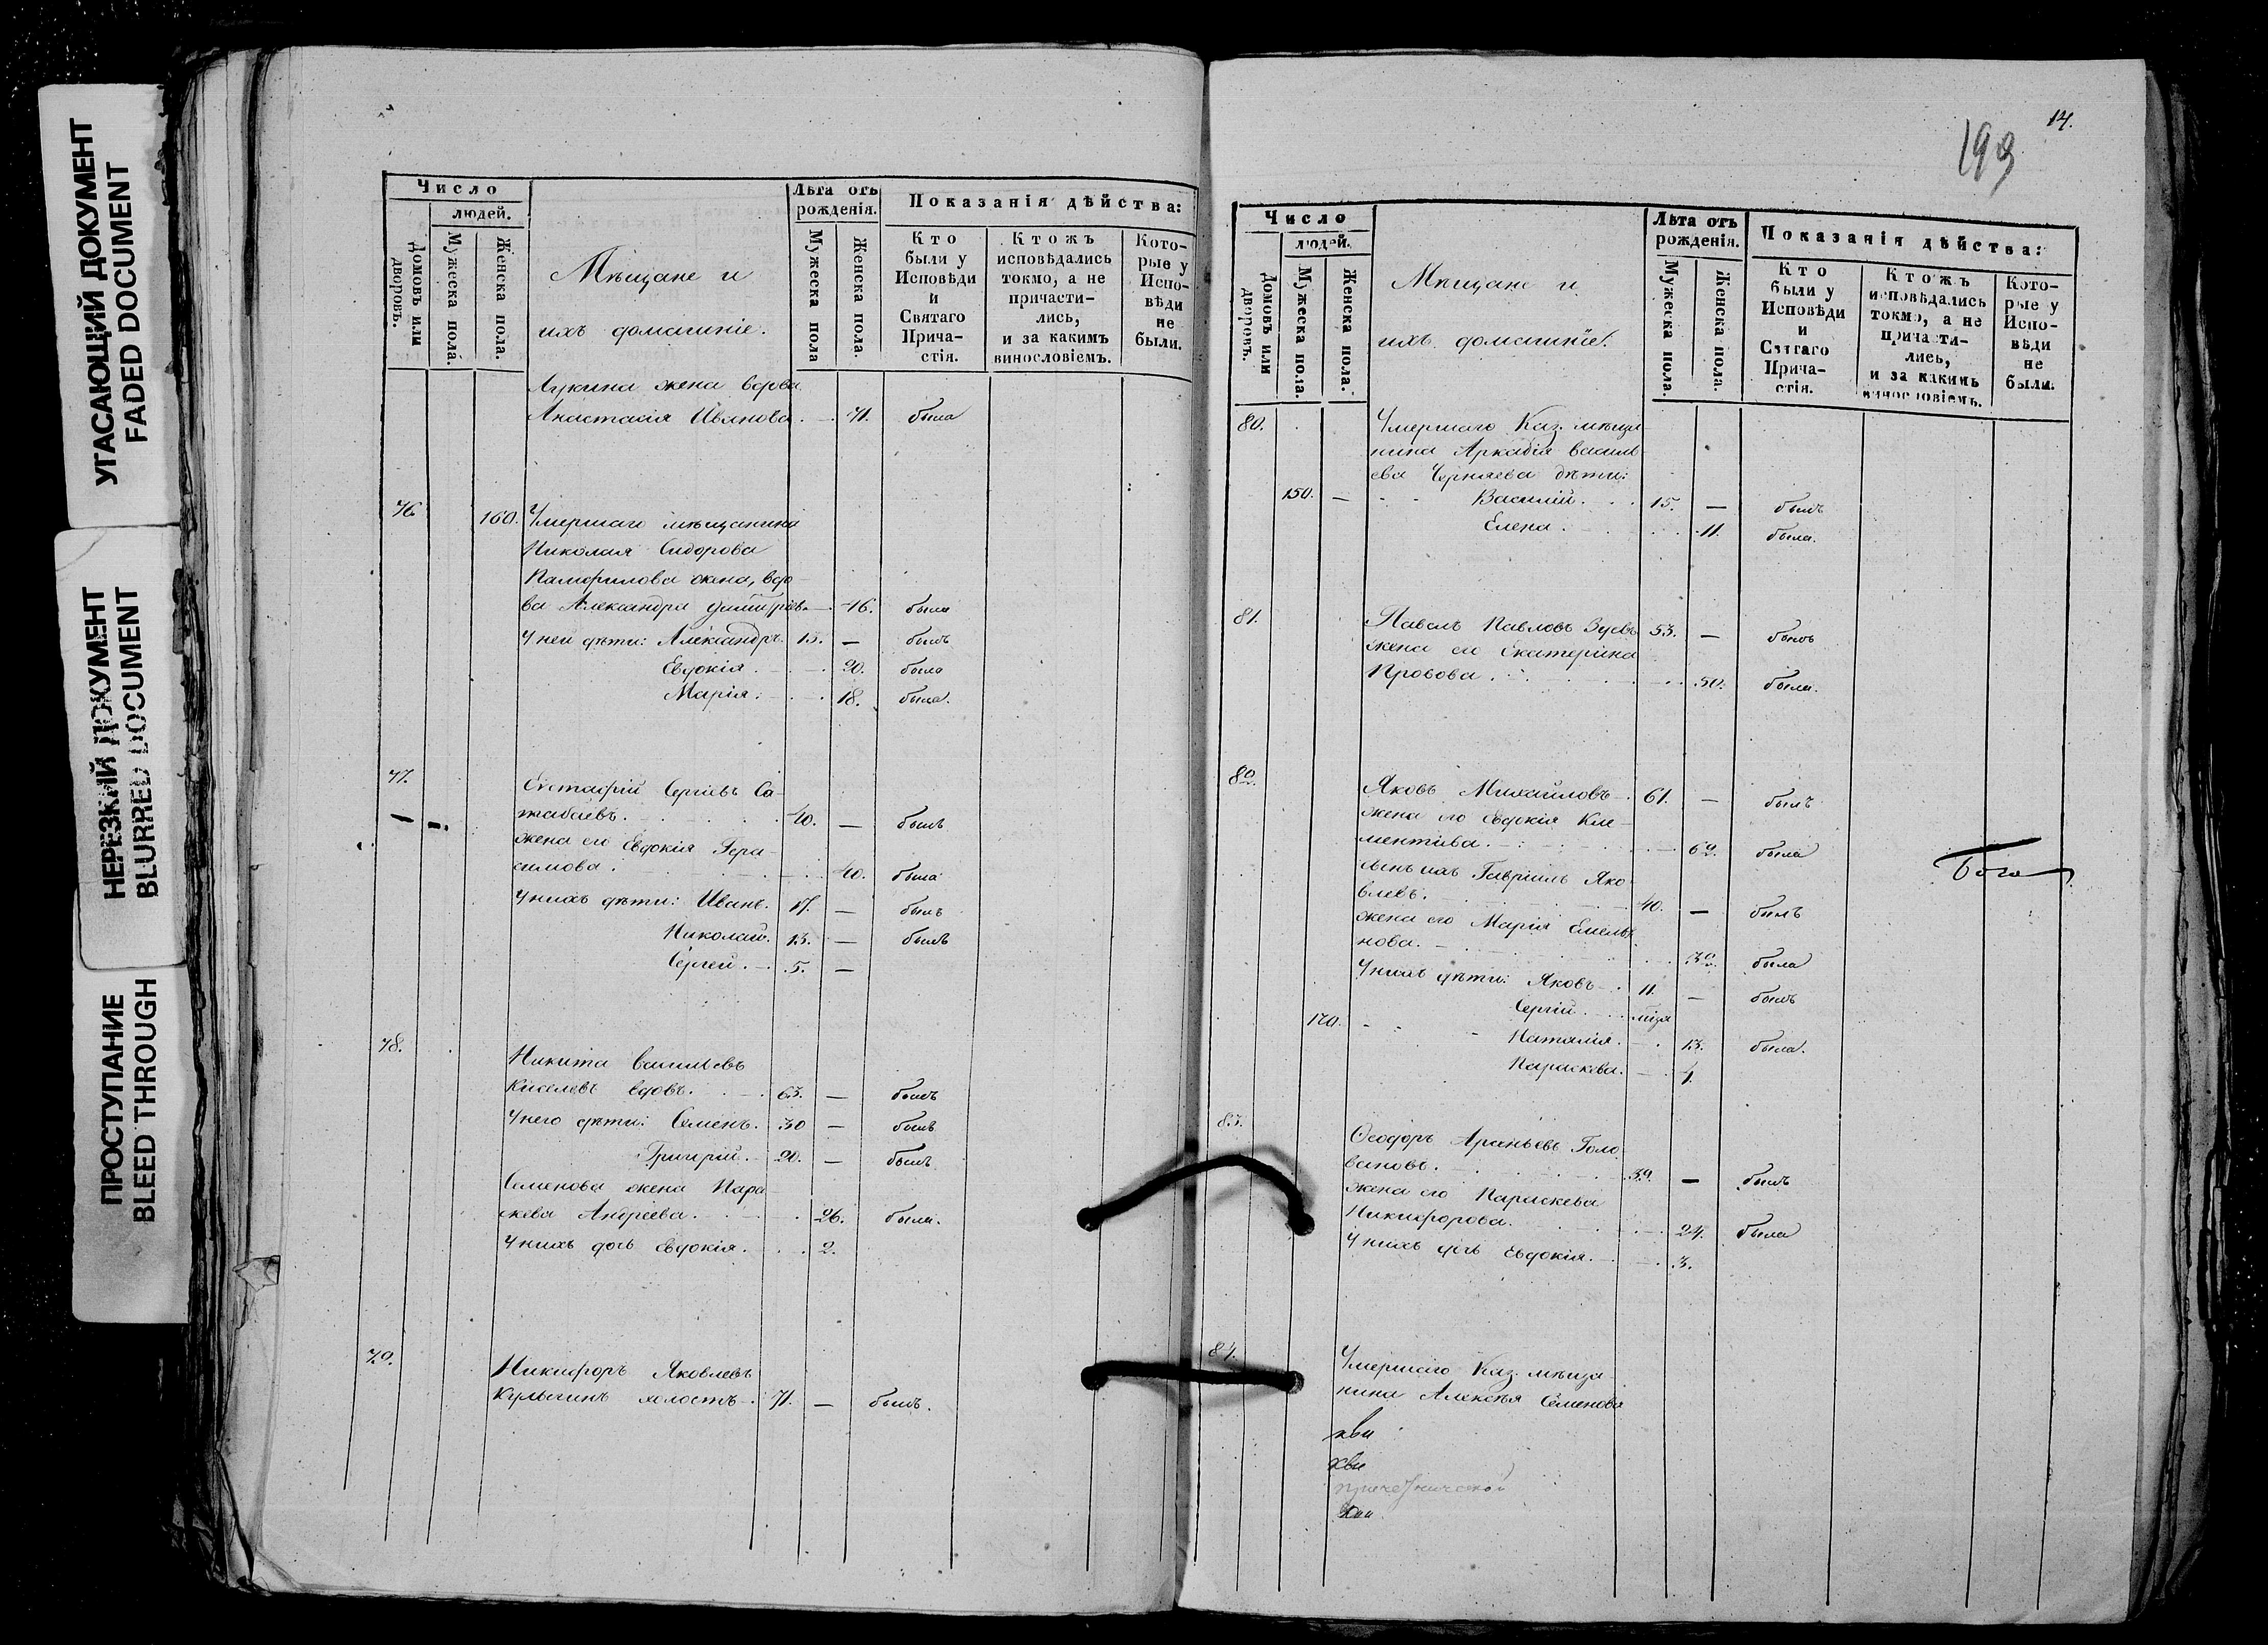 УГАСАЮЩИЙ ДОКУМЕНТ
FADED DOCUMENT
НЕРЕЗКИЙ ДОКУМЕНТ
BLURRED DOCUMENT
ПРОСТУПАНИЕ
BLEED THROUGH
Число
людей.
Домовъ или дворовъ.
Мужеска пола.
Женска пола.
Мѣщане и
ихъ домашніе.
Лѣта отъ
рожденія.
Мужеска пола
Женска пола.
Показанія дѣйства:
Кто
были у
Исповѣди
и
Святаго
Прича-
стія.
Ктожъ
исповѣдались
токмо, а не
причасти-
лись,
и за какимъ
винословіемъ.
Кото-
рые у
Испо-
вѣди
не
были.
Лукина жена вдова
Анастасія Иванова 71. была
76. 160. Умершаго мѣщанина
Николая Сидорова
Памфилова жена, вдо-
ва Александра 46. была
У ней дѣти: Александръ. 15. — былъ
Евдокія. 20. была
Марія. 18. была.
77. Евстафій Сергіевъ
40. — былъ
жена его Евдокія Гера-
симова. 40. была
У нихъ дѣти: Иванъ. 17. — былъ
Николай. 13. — былъ
Сергей. 5. —
78. Никита Васильевъ
Киселевъ вдовъ. 63. — былъ
У него дѣти: Семенъ. 30 — былъ
Григорій. 20. — былъ
Семенова жена Пара-
скева Андреева. 26. была.
У нихъ дочь Евдокія. 2.
79. Никифоръ Яковлевъ
Кулыгинъ холостъ. 71. — былъ.
14.
199
Число
людей.
Домовъ или дворовъ.
Мужеска пола.
Женска пола.
Мѣщане и
ихъ домашніе.
Лѣта отъ
рожденія.
Мужеска пола.
Женска пола.
Показанія дѣйства:
Кто
были у
Исповѣди
и
Святаго
Прича-
стія.
Ктожъ
исповѣдались
токмо, а не
причасти-
лись,
и за какимъ
винословіемъ.
Кото-
рые у
Испо-
вѣди
не
были.
80. Умершаго Каз. мѣща
нина Аркадія Василь
ева Черняева дѣти:
150. — Василій. 15. — былъ
Елена. 11. была.
81. Павелъ Павловъ Зуевъ 53. — былъ
жена его Екатерина
Провова. 50. была.
82. Яковъ Михайловъ 61. — былъ
жена его Евдокія Кле-
ментіева. 62. была
сынъ ихъ Гавріилъ Яко
влевъ. 40. — былъ
жена его Марія Емелья
нова. 32. была
У нихъ дѣти: Яковъ 11. — былъ
Сергій.
170. Наталія. 13. была.
Параскева. 4.
83. Ѳеодоръ Арсеньевъ Голо
вановъ. 39. — былъ
жена его Параскева
Никифорова. 24. была
У нихъ дочь Евдокія. 3.
84. Умершаго Каз. мѣща-
нина Алексѣя Семенова